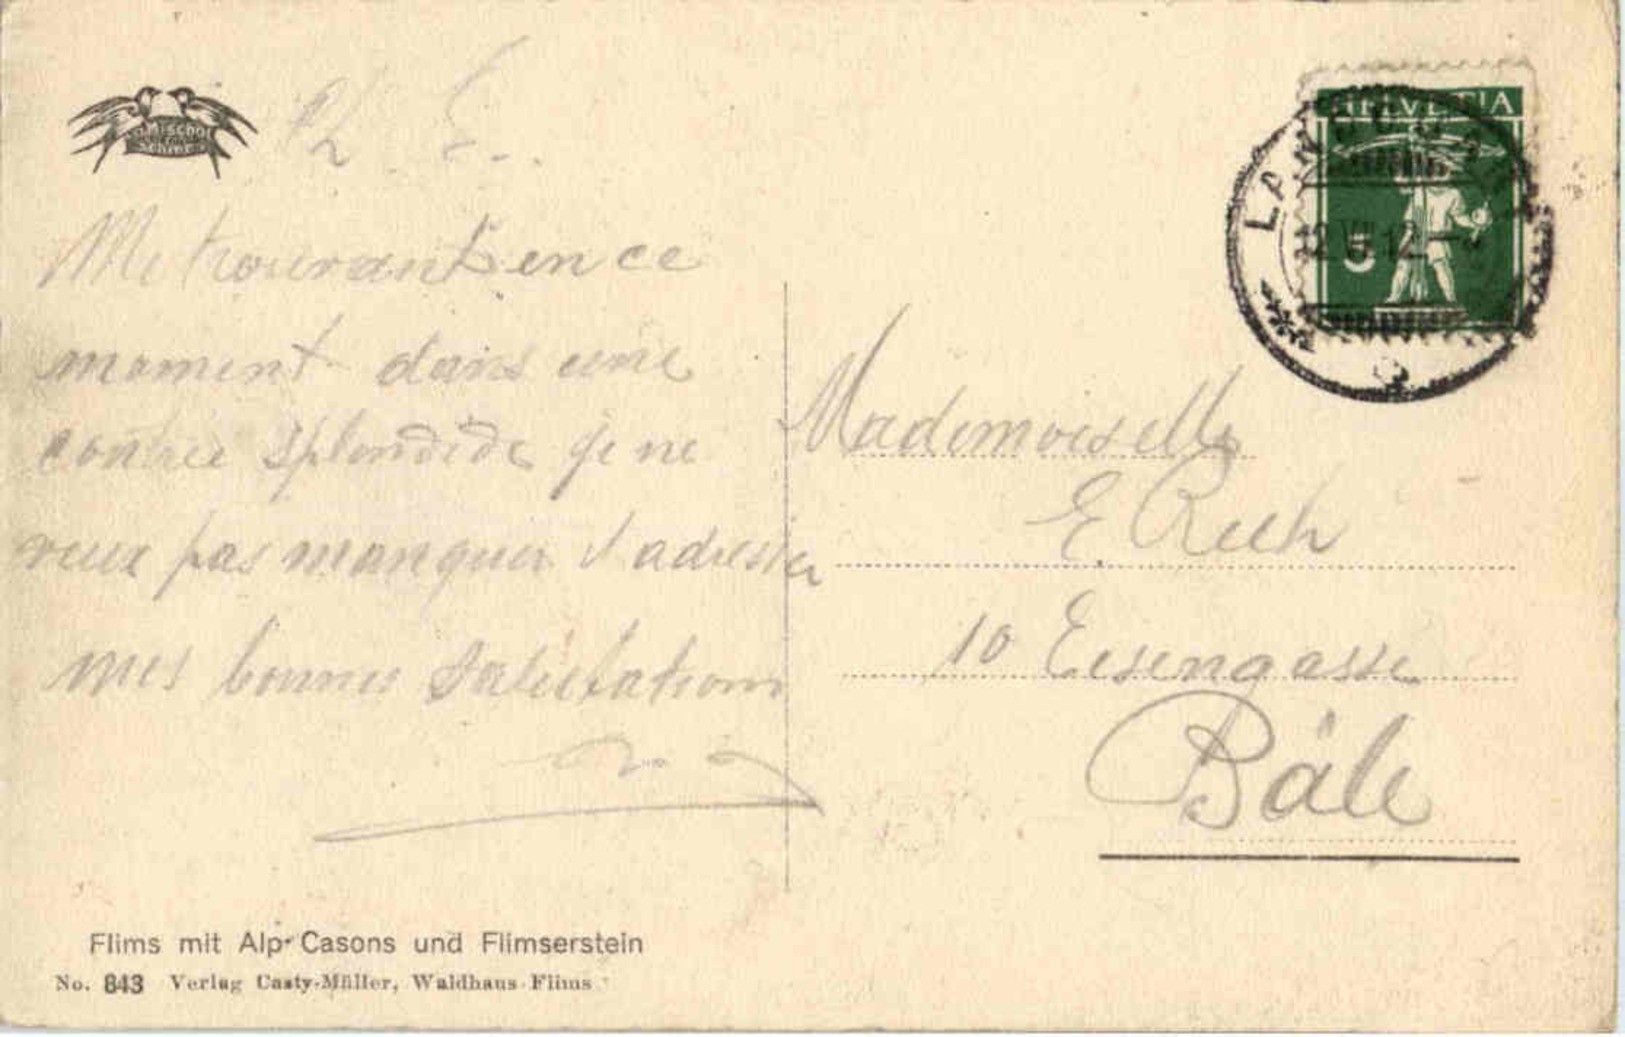 Mischol
Schiers
Me trouvant en ce
moment dans une
contrée splendide je ne
veux pas manquer d'adresser
mes bonnes salutations
HELVETIA
5
Mademoiselle
E. Ruh
10 Eisengasse
Bâle
Flims mit Alp Casons und Flimserstein
No. 843 Verlag Casty-Müller, Waldhaus-Flims